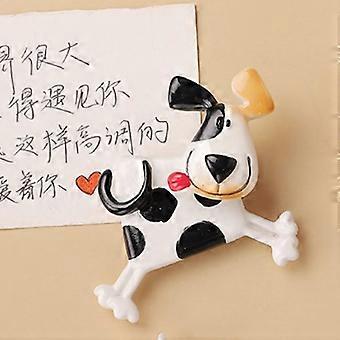 很大
得遇见你
这样高调的
爱着你